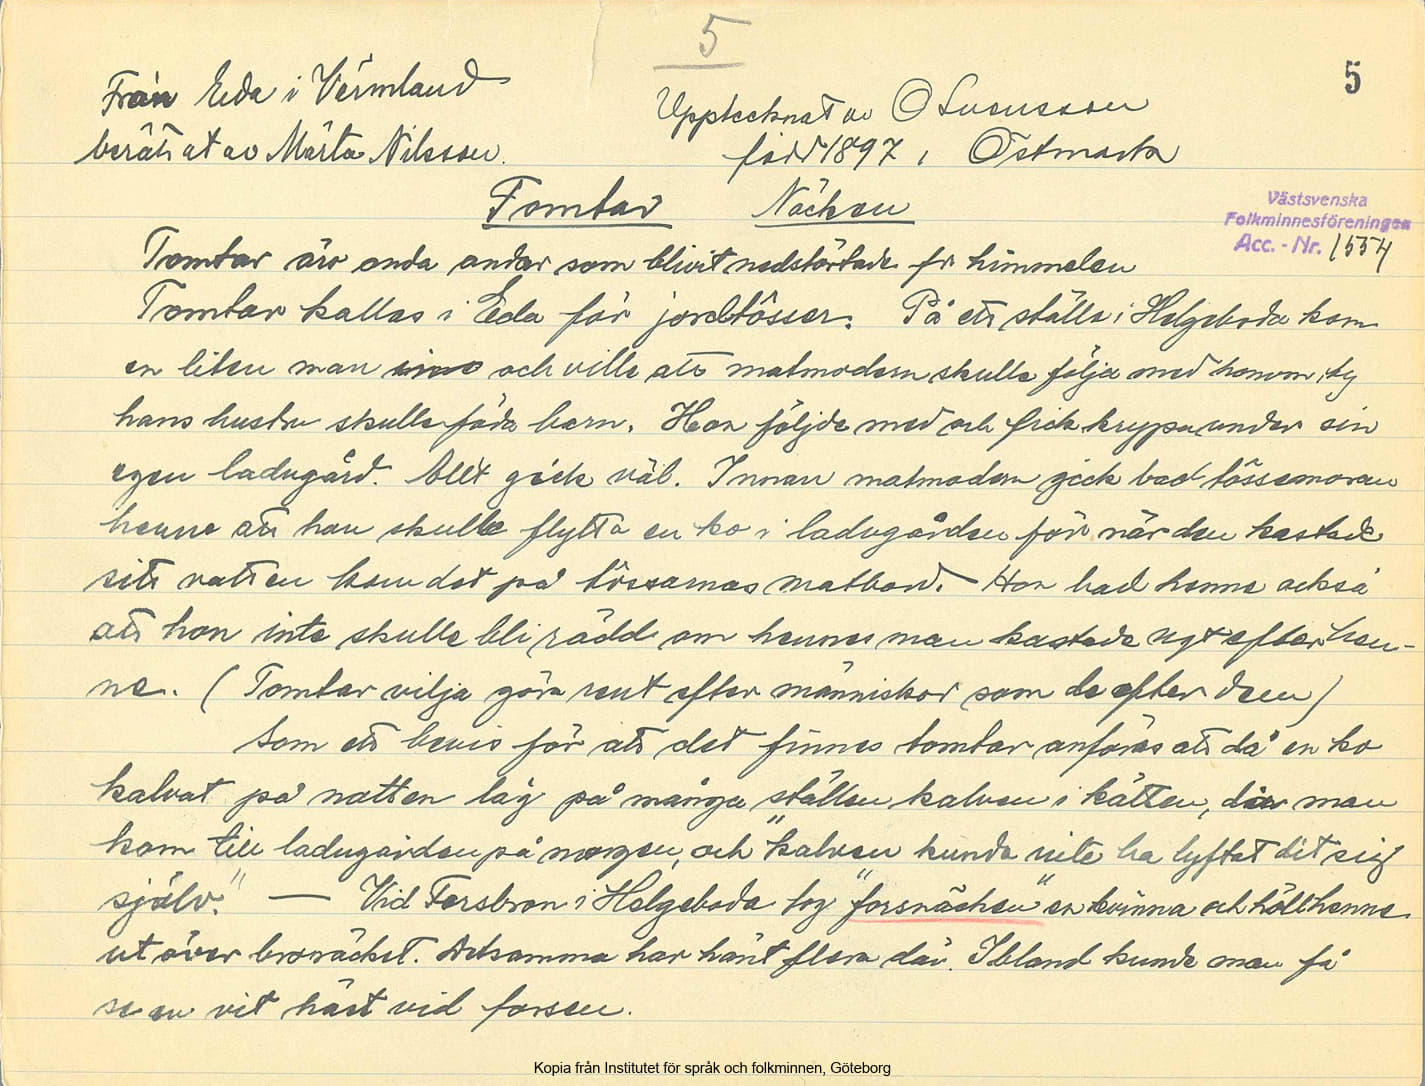 5
5
Från Eda i Värmland
berättat av Märta Nilsson.
Upptecknat av O Svensson
född 1897 i Östmark
Västsvenska
Folkminnesföreningen
Acc. - Nr. 1554
Tomtar Näcken
Tomtar äro onda andar som blivit nedstörtade fr himmelen
Tomtar kallas i Eda för jordtösser. På ett ställe i Helgeboda kom
en liten man och ville att matmodern skulle följa med honom, ty
hans hustru skulle föda barn. Hon följde med och fick krypa under sin
egen ladugård. Allt gick väl. Innan matmodern gick bad tössemoran
henne att hon skulle flytta en ko i ladugården för när den kastade
sitt vatten kom det på tössarnas matbord. Hon bad henne också
att hon inte skulle bli rädd om hennes man kastade ngt efter hen-
ne. (Tomtar vilja göra rent efter människor som de efter dem)
Som ett bevis för att det finnes tomtar anföres att då en ko
kalvat på natten låg på många ställen kalven i kätten, där man
kom till ladugården på morgen, och "kalven kunde inte ha lyftat dit sig
själv." — Vid Forsbron i Helgeboda tog "forsnäcken" en kvinna och höll henne
ut över broräcket. Detsamma har hänt flera där. Ibland kunde man få
se en vit häst vid forsen.
Kopia från Institutet för språk och folkminnen, Göteborg